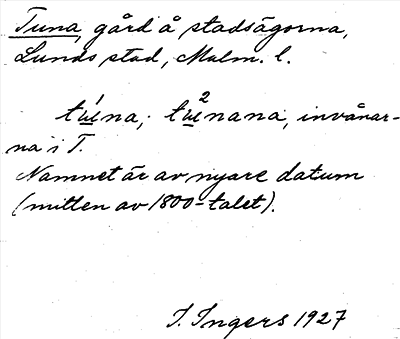 Tuna, gård å stadsägorna,
Lunds stad, Malm. l.
tu̲¹na; tu̲²nana, invånar-
na i T.
Namnet är av nyare datum
(mitten av 1800-talet).
I. Ingers 1927